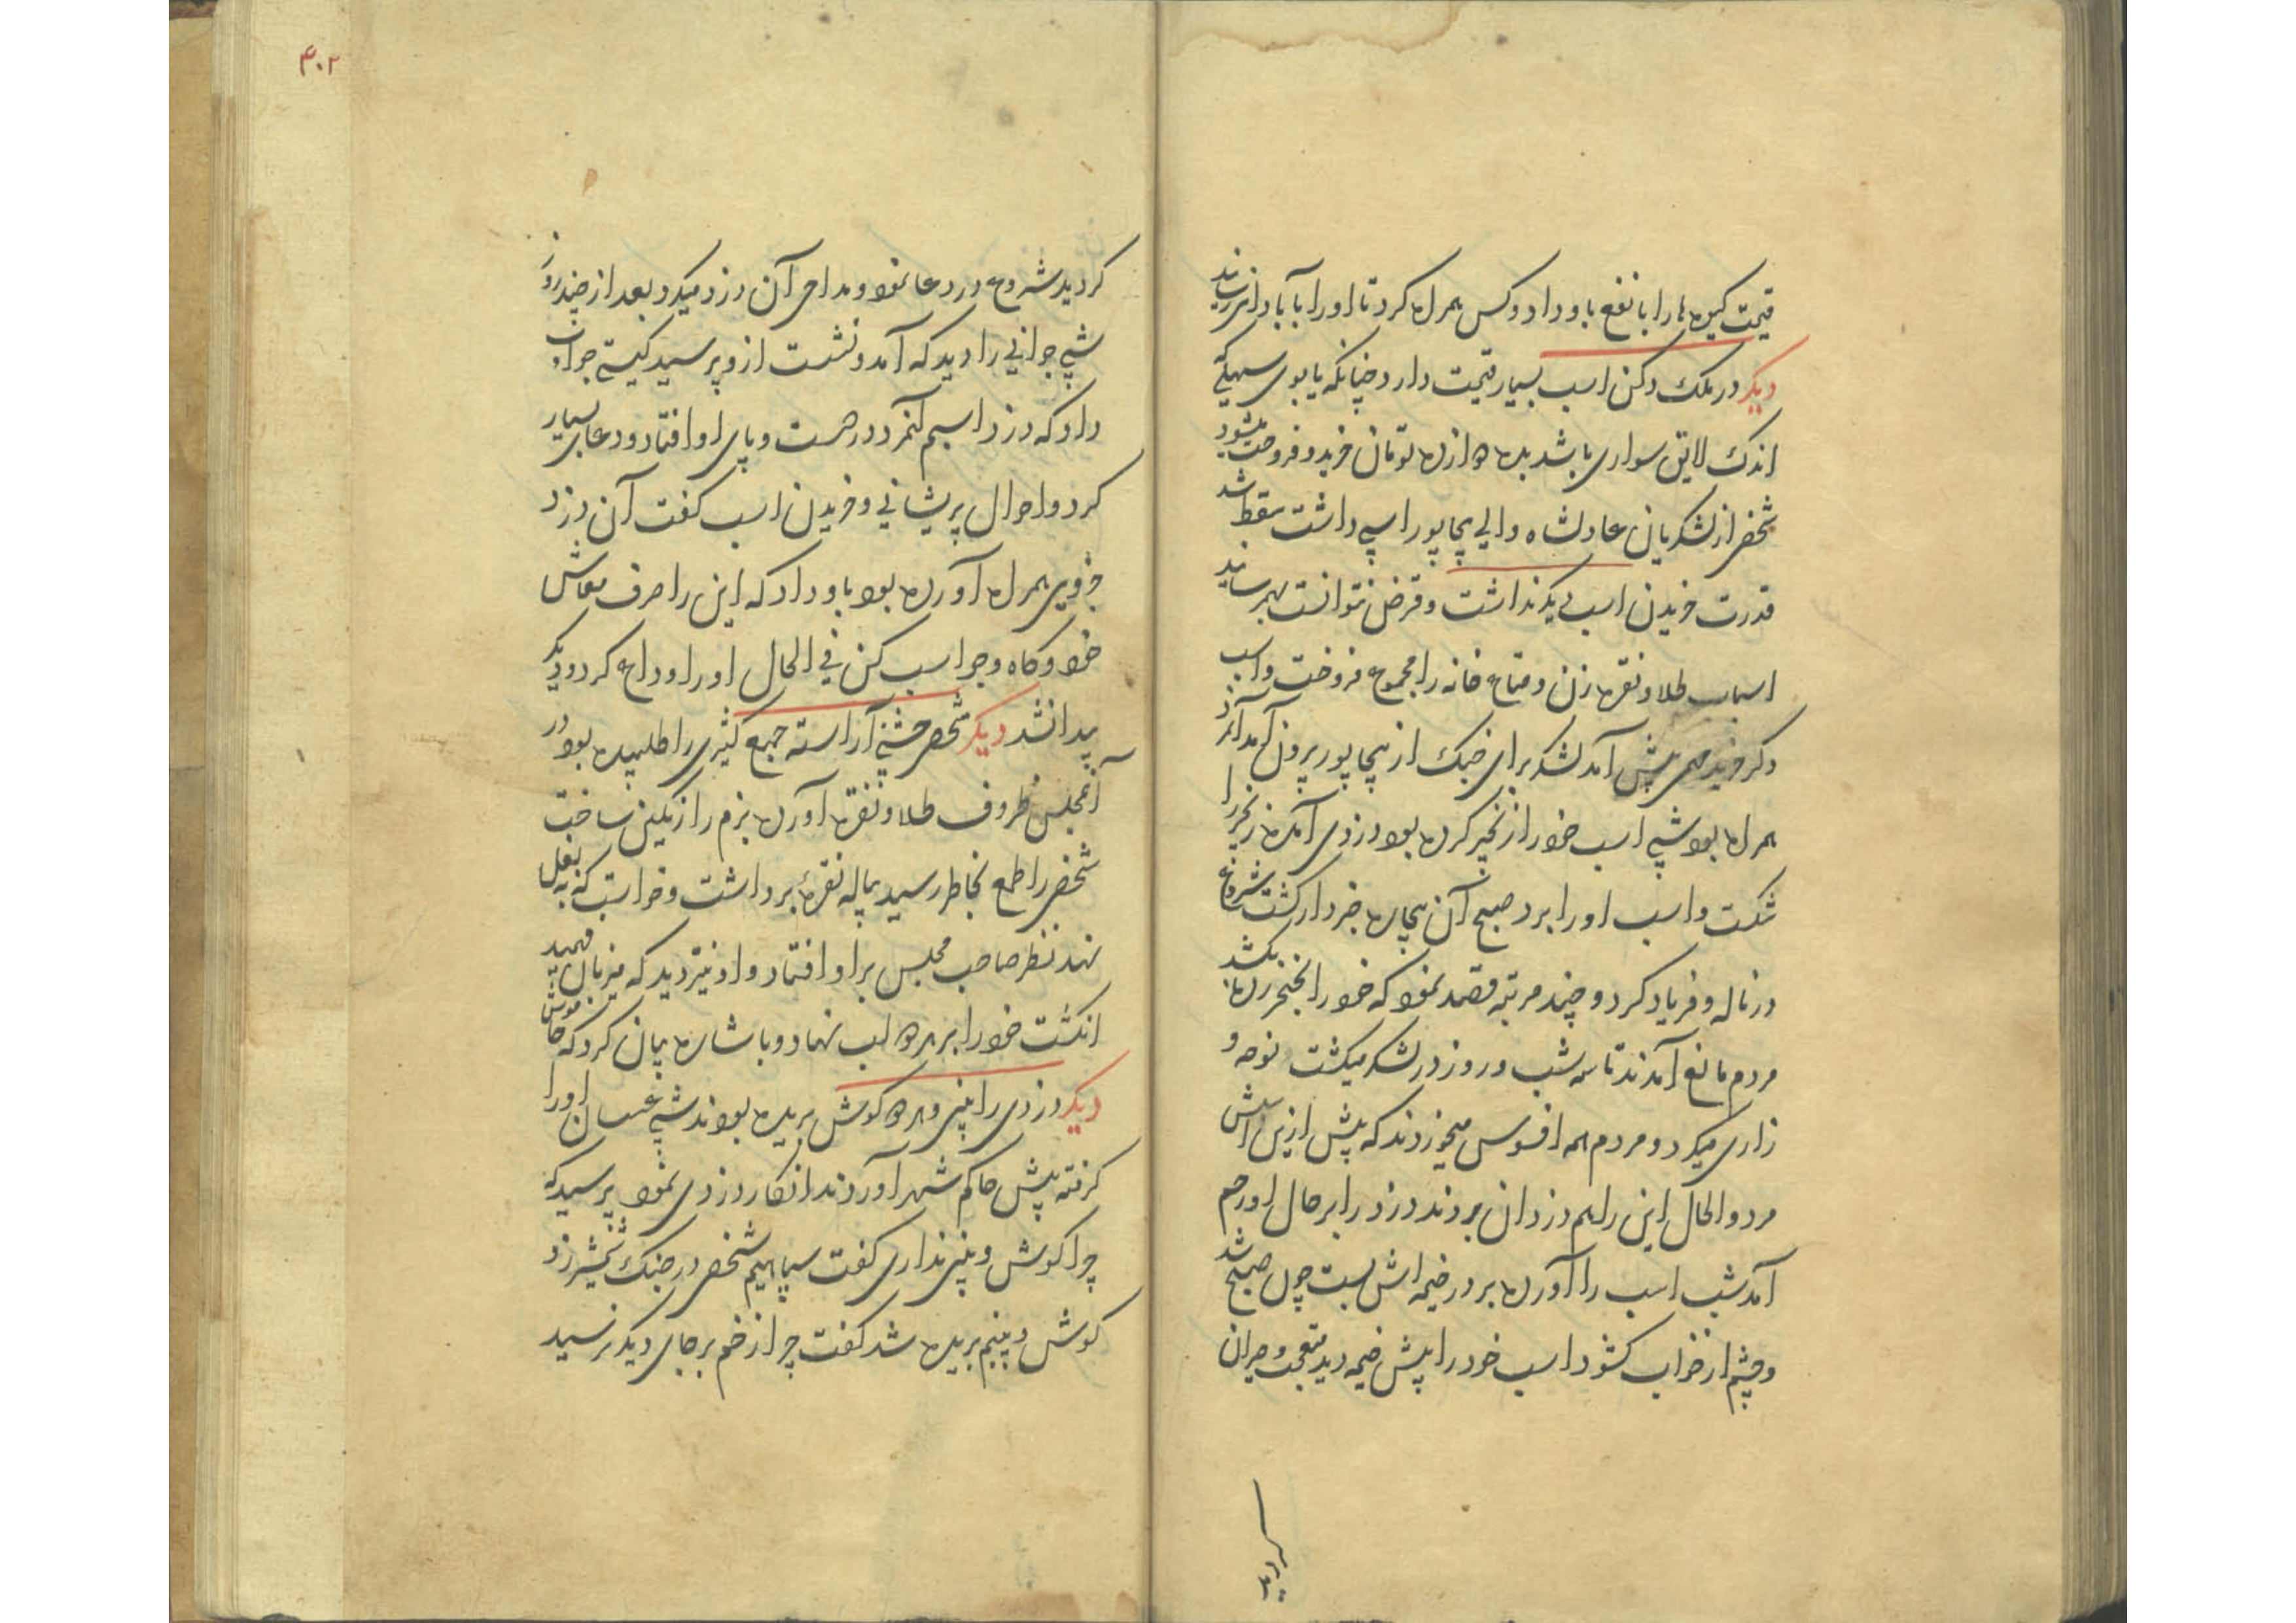 قیمت کیسه ها را با نفع باو داد و کس همراه کرد تا او را بآبادانی رسانید
دیگر در ملک دکن اسب بسیار قیمت دارد چنانکه یابوی سهلی که
اندک لایق سواری باشد به دوازده تومان خرید و فروخت میشود
شخصی از لشکریان عادلشاه والی بیجاپور اسپی داشت سقط شد
قدرت خریدن اسب دیگر نداشت و قرض نتوانست بهم رسانید
اسباب طلا و نقره زن و متاع خانه را مجموع فروخت و اسب
پیش آمد لشکر برای جنگ از بیجاپور بیرون آمد
همراه بود شبی اسب خود را زنجیر کرده بود دزدی آمده زنجیر را
شکست و اسب او را برد صبح آن بیچاره خبردار گشت شروع
در ناله و فریاد کرد و چند مرتبه قصد نمود که خود را خنجر زده بکشد
مردم مانع آمدند تا سه شب و روز در لشکر میگشت نوحه و
زاری میکرد و مردم همه افسوس میخوردند که پیش ازین اسبش
مرد و الحال این را هم دزدان بردند دزد را بر حال او رحم
آمد شب اسب را آورده بر در خیمه اش بست چون صبح شد
و چشم از خواب کشود اسب خود را پیش خیمه دید متعجب و حیران
کردید
۴۰۲
کردید شروع در دعا نمود و مداحی آن دزد میکرد بعد از چند روز
شبی جوانی را دید که آمد و نشست از و پرسید کیستی جواب
داد که دزد اسبم آنمرد در دست و پای او افتاد و دعای بسیار
کرد و احوال پریشانی و خریدن اسب گفت آن دزد
جزوی همراه آورده بود باو داد که این را صرف معاش
خود و کاه و جو اسب کن فی الحال او را وداع کرد و دیگر
پیدا نشد دیگر شخصی جشنی آراسته جمع کثیری را طلبیده بود در
آنمجلس ظروف طلا و نقره آورده بزم را رنگین ساخت
شخصی را طمع بخاطر رسید پیاله نقره برداشت و خواست که به بغل
نهد نظر صاحب مجلس بر او افتاد و او نیز دید که میزبان فهمید
انکشت خود را بر هر دو لب نهاد و باشاره بیان کرد که خاموش
دیگر دزدی را بینی و هر دو کوش بریده بودند شبی عسسان او را
کرفته پیش حاکم شهر آوردند انکار دزدی نمود پرسید که
چرا کوش و بینی نداری کفت سپاهیم شخصی در جنک شمشیر زد
کوش و بینیم بریده شد کفت چرا زخم بر جای دیکر نرسید